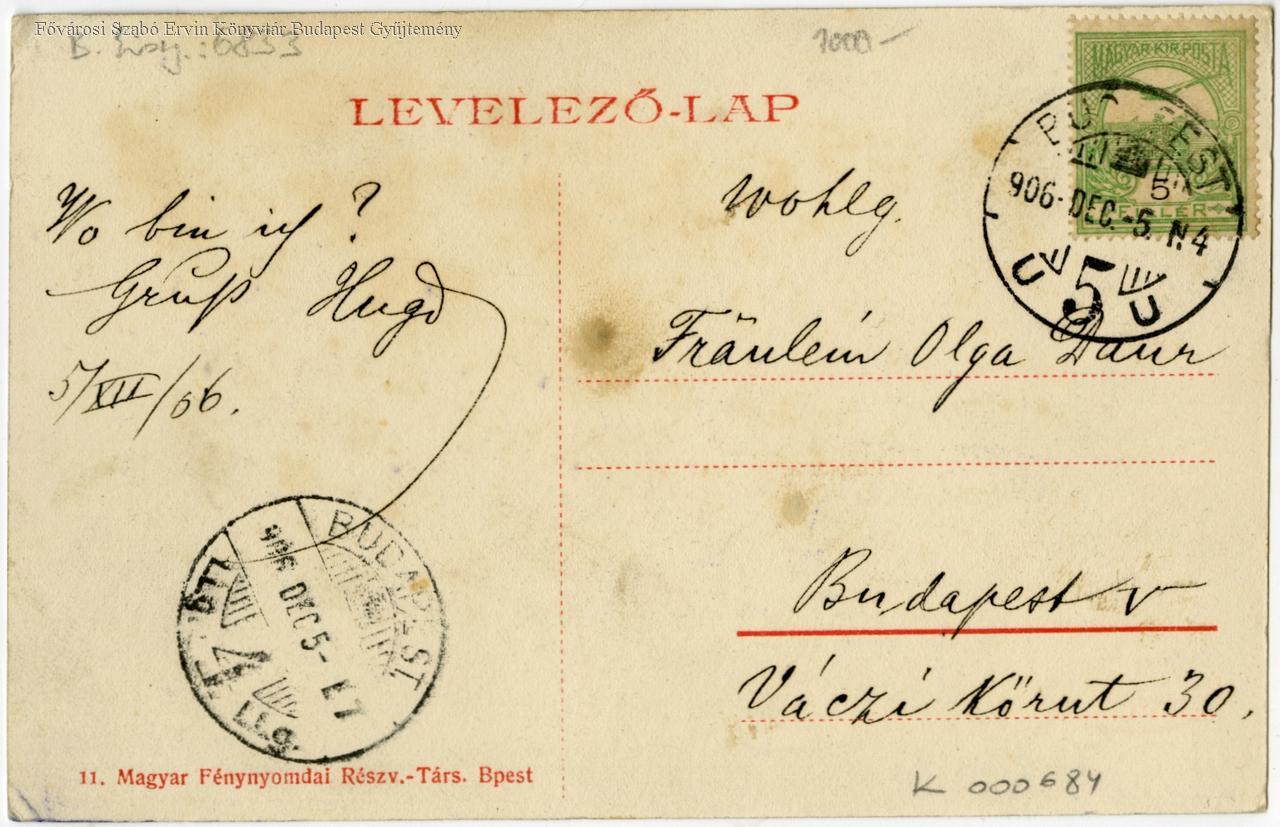 Fővárosi Szabó Ervin Könyvtár Budapest Gyűjtemény
1000-
LEVELEZŐ-LAP
MAGYAR KIR. POSTA
5
FILLÉR
BUDAPEST
906-DEC.-5. N.4
5
Wo bin ich?
Gruß Hugo
5/XII/06.
wohlg.
Fräulein Olga Daur
Budapest V
Váczi Körut 30.
BUDAPEST
906 DEC 5-
11. Magyar Fénynyomdai Részv.-Társ. Bpest
K 000684